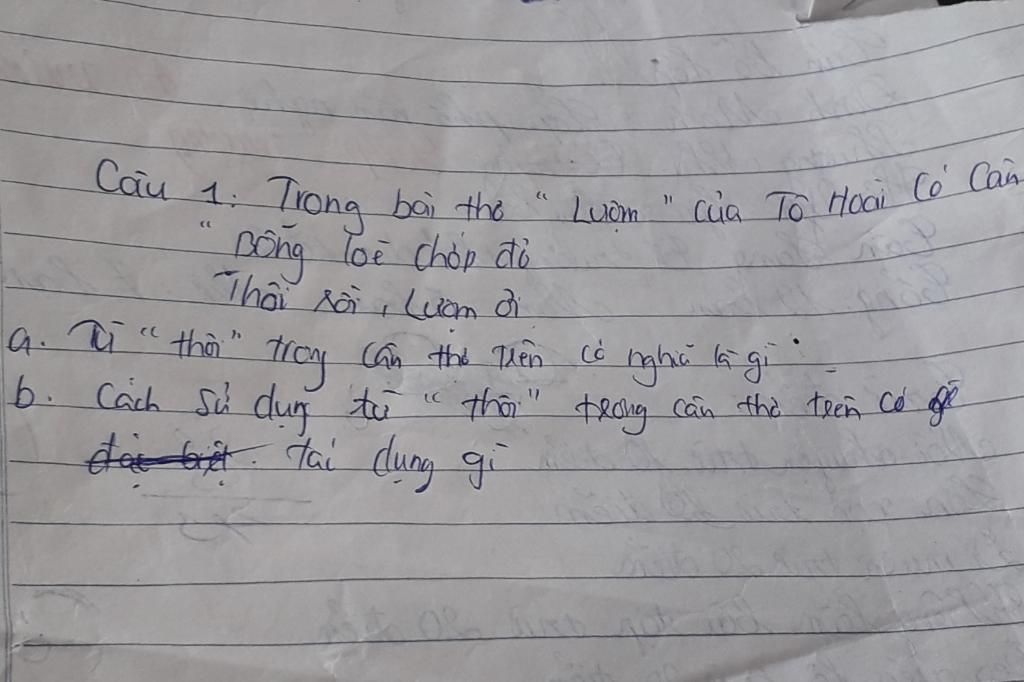 Câu 1: Trong bài thơ " Lượm " của Tô Hoài có Câu
" Bỗng loè chớp đỏ
Thôi rồi, Lượm ơi
a. Từ " thôi " trong câu thơ trên có nghĩa là gì
b. Cách sử dụng từ " thôi " trong câu thơ trên có gì
đặc biệt. tác dụng gì